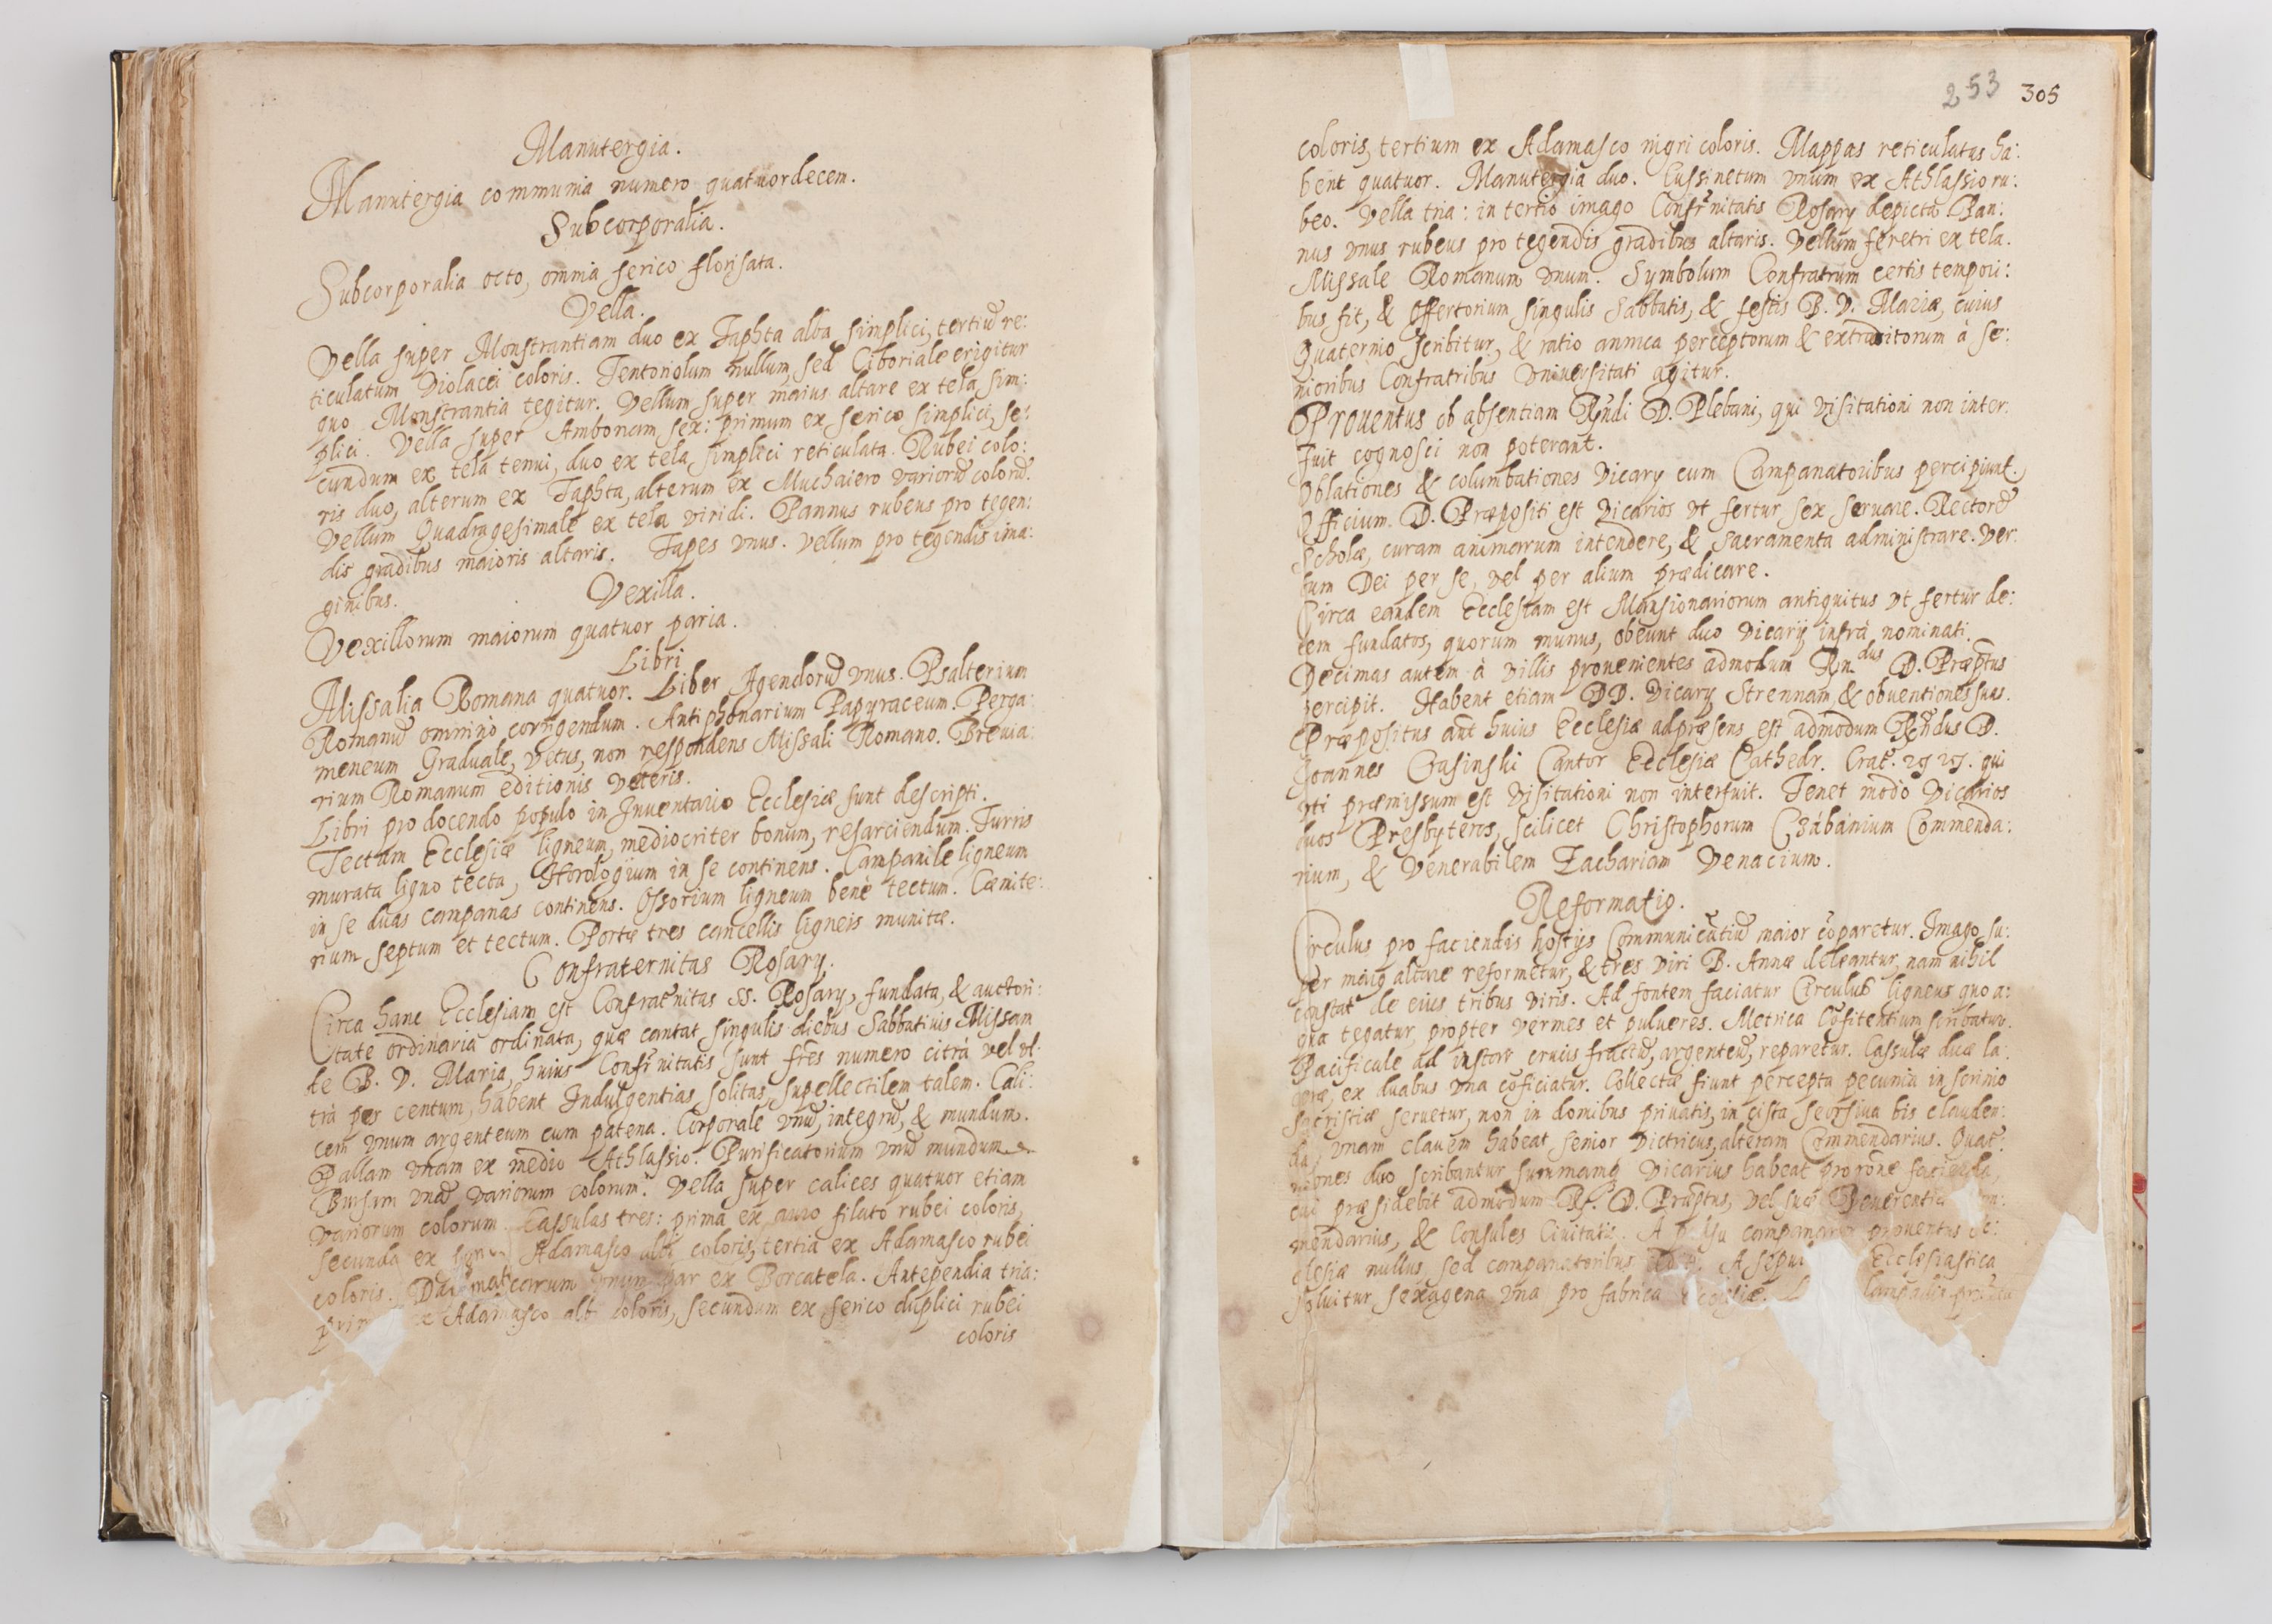 Manutergia.
Manutergia communia numero quatuordecem.
Subcorporalia.
Subcorporalia octo, omnia serico florisata.
Vella.
Vella super Monstrantiam duo ex Taphta alba simplici, tertiū re:
ticulatum Violacei coloris. Tentoriolum nullum, sed Ciboriale erigitur
quo Monstrantia tegitur. Vellum super maius altare ex tela sim:
plici. Vella super Ambonem sex: primum ex serico simplici, se:
cundum ex tela tenui, duo ex tela simplici reticulata. Rubei colo:
ris duo, alterum ex Taphta, alterum ex Muchaiero variorū colorū.
Vellum Quadragesimale ex tela viridi. Pannus rubeus pro tegen:
dis gradibus maioris altaris. Tapes vnus. Vellum pro tegendis ima:
ginibus.
Vexilla.
Vexillorum maiorum quatuor paria.
Libri
Missalia Romana quatuor. Liber Agendorū vnus. Psalterium
Romanū omnino corrigendum. Antiphonarium Papyraceum. Perga:
meneum Graduale, vetus, non respondens Missali Romano. Breuia:
rium Romanum editionis veteris.
Libri pro docendo populo in Inuentario Ecclesiæ sunt descripti.
Tectum Ecclesiæ ligneum, mediocriter bonum, resarciendum. Turris
murata ligno tecta, Horologium in se continens. Campanile ligneum
in se duas campanas continens. Ossorium ligneum benè tectum. Cæmite:
rium septum et tectum. Portæ tres cancellis ligneis munitæ.
Confraternitas Rosary.
Circa hanc Ecclesiam est Confratnitas SS. Rosary, fundata, & auctori:
tate ordinaria ordinata, quæ cantat singulis diebus Sabbatiuis Missam
de B. V. Maria, huius Confrnitatis sunt frēs numero citrà vel vl:
tra per centum, habent Indulgentias solitas, supellectilem talem. Cali:
cem vnum argenteum cum patena. Corporale vnū, integrū, & mundum.
Pallam vnam ex medio Athlassio. Purificatorium vnū mundum
Bursam vnā variorum colorum. Vella super calices quatuor etiam
variorum colorum. Cassulas tres: prima ex auro filato rubei coloris,
secunda ex Adamasco albi coloris, tertia ex Adamasco rubei
coloris. Dalmaticarum vnum par ex Borcatela. Antependia tria:
Adamasco albi coloris, secundum ex serico duplici rubei
coloris
253 305
coloris, tertium ex Adamasco nigri coloris. Mappas reticulatas ha:
bent quatuor. Manutergia duo. Cussinetum vnum ex Athlassio ru:
beo. Vella tria: in tertio imago Confrnitatis Rosary depicta. Pan:
nus vnus rubeus pro tegendis gradibus altaris. Vellum feretri ex tela.
Missale Romanum vnum. Symbolum Confratrum certis tempori:
bus fit, & Offertorium singulis Sabbatis, & festis B. V. Mariæ, cuius
Quaternio scribitur, & ratio annua perceptorum & extraditorum à se:
nioribus Confratribus vniuersitati agitur.
Prouentus ob absentiam Rndi D. Plebani, qui visitationi non inter:
fuit cognosci non poterant.
Oblationes & columbationes Vicary cum Campanatoribus percipiunt.
Officium. D. Præpositi est Vicarios vt fertur sex seruare. Rectorē
Scholæ, curam animarum intendere, & Sacramenta administrare. Ver:
bum Dei per se, vel per alium prædicare.
Circa eandem Ecclesiam est Mansionariorum antiquitus vt fertur de:
cem fundatos, quorum munus, obeunt duo Vicarij infrà nominati.
Decimas autem à villis prouenientes admodum Rn.dus D. Præptus
percipit. Habent etiam DD. Vicary Strennam, & obuentiones suas.
Præpositus aūt huius Ecclesiæ adpræsens est admodum Rndus D.
Joannes Crasinski Cantor Ecclesiæ Cathedr. Crac. qui
vti præmissum est Visitationi non interfuit. Tenet modo Vicarios
duos Presbyteros, scilicet Christophorum Czábánium Commenda:
rium, & Venerabilem Zachariam Venacium.
Reformatio.
Circulus pro faciendis hostijs Communicātiū maior cōparetur. Imago su:
per maius altare reformetur, & tres viri B. Annæ deleantur, nam nihil
constat de eius tribus viris. Ad fontem faciatur Circulus ligneus quo a:
qua tegatur, propter vermes et pulueres. Metrica Cōfitentium scribatur.
Pacificale ad instar crucis fractū, argenteū, reparetur. Cassulæ duæ la:
ceræ, ex duabus vna cōficiatur. Collectæ fiunt percepta pecunia in scrinio
sacristiæ seruetur, non in domibus priuatis, in cista seorsiua bis clauden:
da, vnam clauem habeat senior Victricus, alteram Commendarius. Quat:
niones duo scribantur, summamq Vicarius habeat pro rōne facienda,
cui præsidebit admodum R. D. Præptus, vel suæ Reuerentiæ
mendarius, & Consules Ciuitatis. A pulsu campanarū prouentus Ec:
clesiæ nullus, sed campanatoribus Ecclesiastica
soluitur sexagena vna pro fabrica Ecclesiæ. lampadis